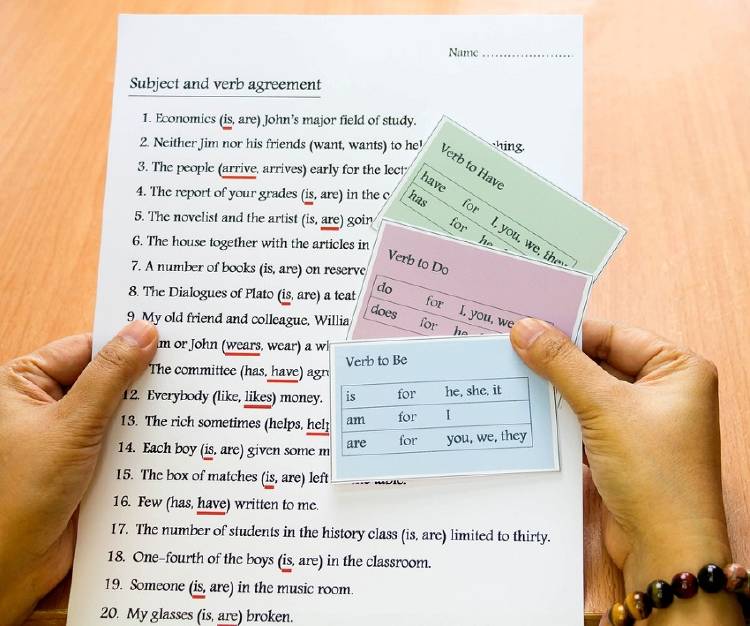 Name ........................
Subject and verb agreement
1. Economics (is, are) John's major field of study.
2. Neither Jim nor his friends (want, wants) to hel hing.
3. The people (arrive, arrives) early for the lect
4. The report of your grades (is, are) in the
5. The novelist and the artist (is, are) goin
6. The house together with the articles in
7. A number of books (is, are) on reserve
8. The Dialogues of Plato (is, are) a
9. My old friend and colleague, Willia
or John (wears, wear) a
The committee (has, have) agr
12. Everybody (like, likes) money.
13. The rich sometimes (helps, help
14. Each boy (is, are) given some m
15. The box of matches (is, are) left
16. Few (has, have) written to me.
17. The number of students in the history class (is, are) limited to thirty.
18. One-fourth of the boys (is, are) in the classroom.
19. Someone (is, are) in the music room.
20. My glasses (is, are) broken.
Verb to Have
have for I, you, we, they
has for he
Verb to Do
do for I, you, we
does for he
Verb to Be
is for he, she, it
am for I
are for you, we, they